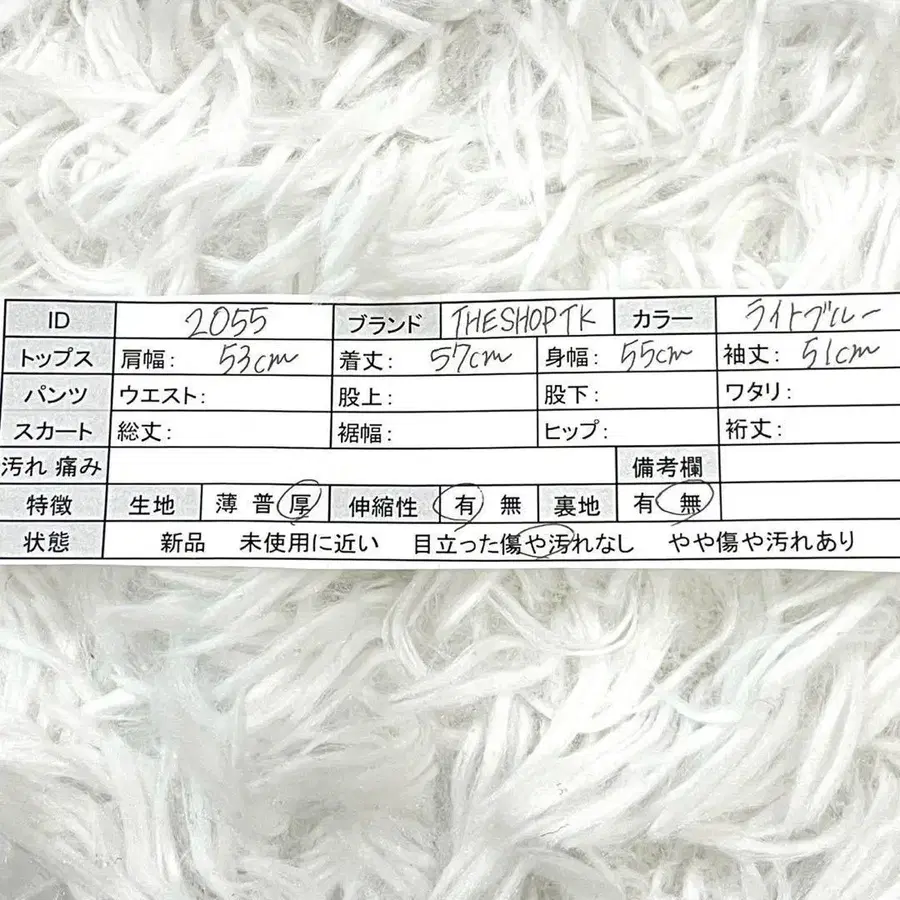 ID 2055 ブランド THESHOPTK カラー ライトブルー
トップス 肩幅: 53cm 着丈: 57cm 身幅: 55cm 袖丈: 51cm
パンツ ウエスト: 股上: 股下: ワタリ:
スカート 総丈: 裾幅: ヒップ: 裄丈:
汚れ 痛み 備考欄
特徴 生地 薄 普 厚 伸縮性 有 無 裏地 有 無
状態 新品 未使用に近い 目立った傷や汚れなし やや傷や汚れあり